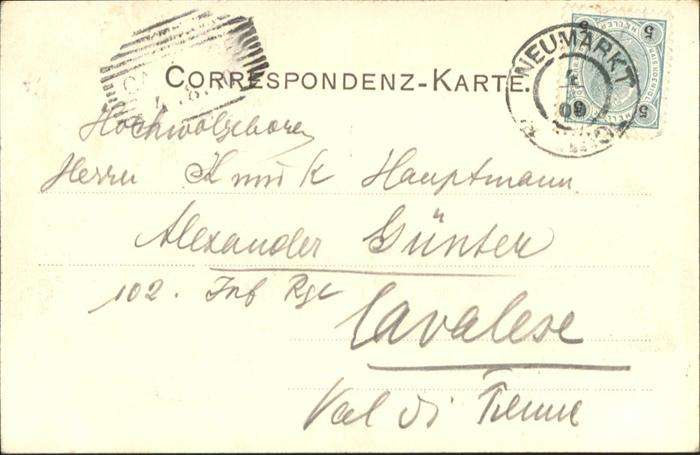 CORRESPONDENZ-KARTE.
NEUMARKT
5
5
Hochwolgeboren
Herrn K und K Hauptmann
Alexander Günter
102. Inf Rgt
Cavalese
Val di Fieme